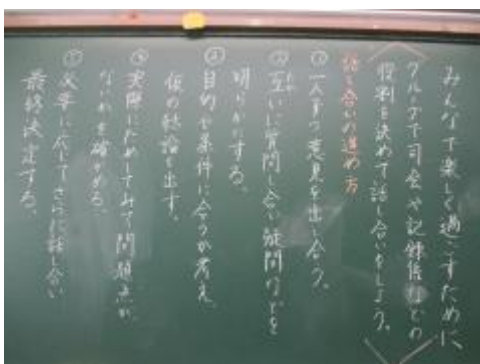 みんなで楽しく過ごすために、
グループで司会や記録係などの
役割を決めて話し合いをしよう。
話し合いの進め方
①一人ずつ意見を出し合う。
②互いに質問し合い疑問などを
明らかにする。
③目的や条件に合うか考え、
仮の結論を出す。
④実際にためしてみて問題点が
ないかを確かめる。
⑤必要に応じてさらに話し合い
最終決定する。